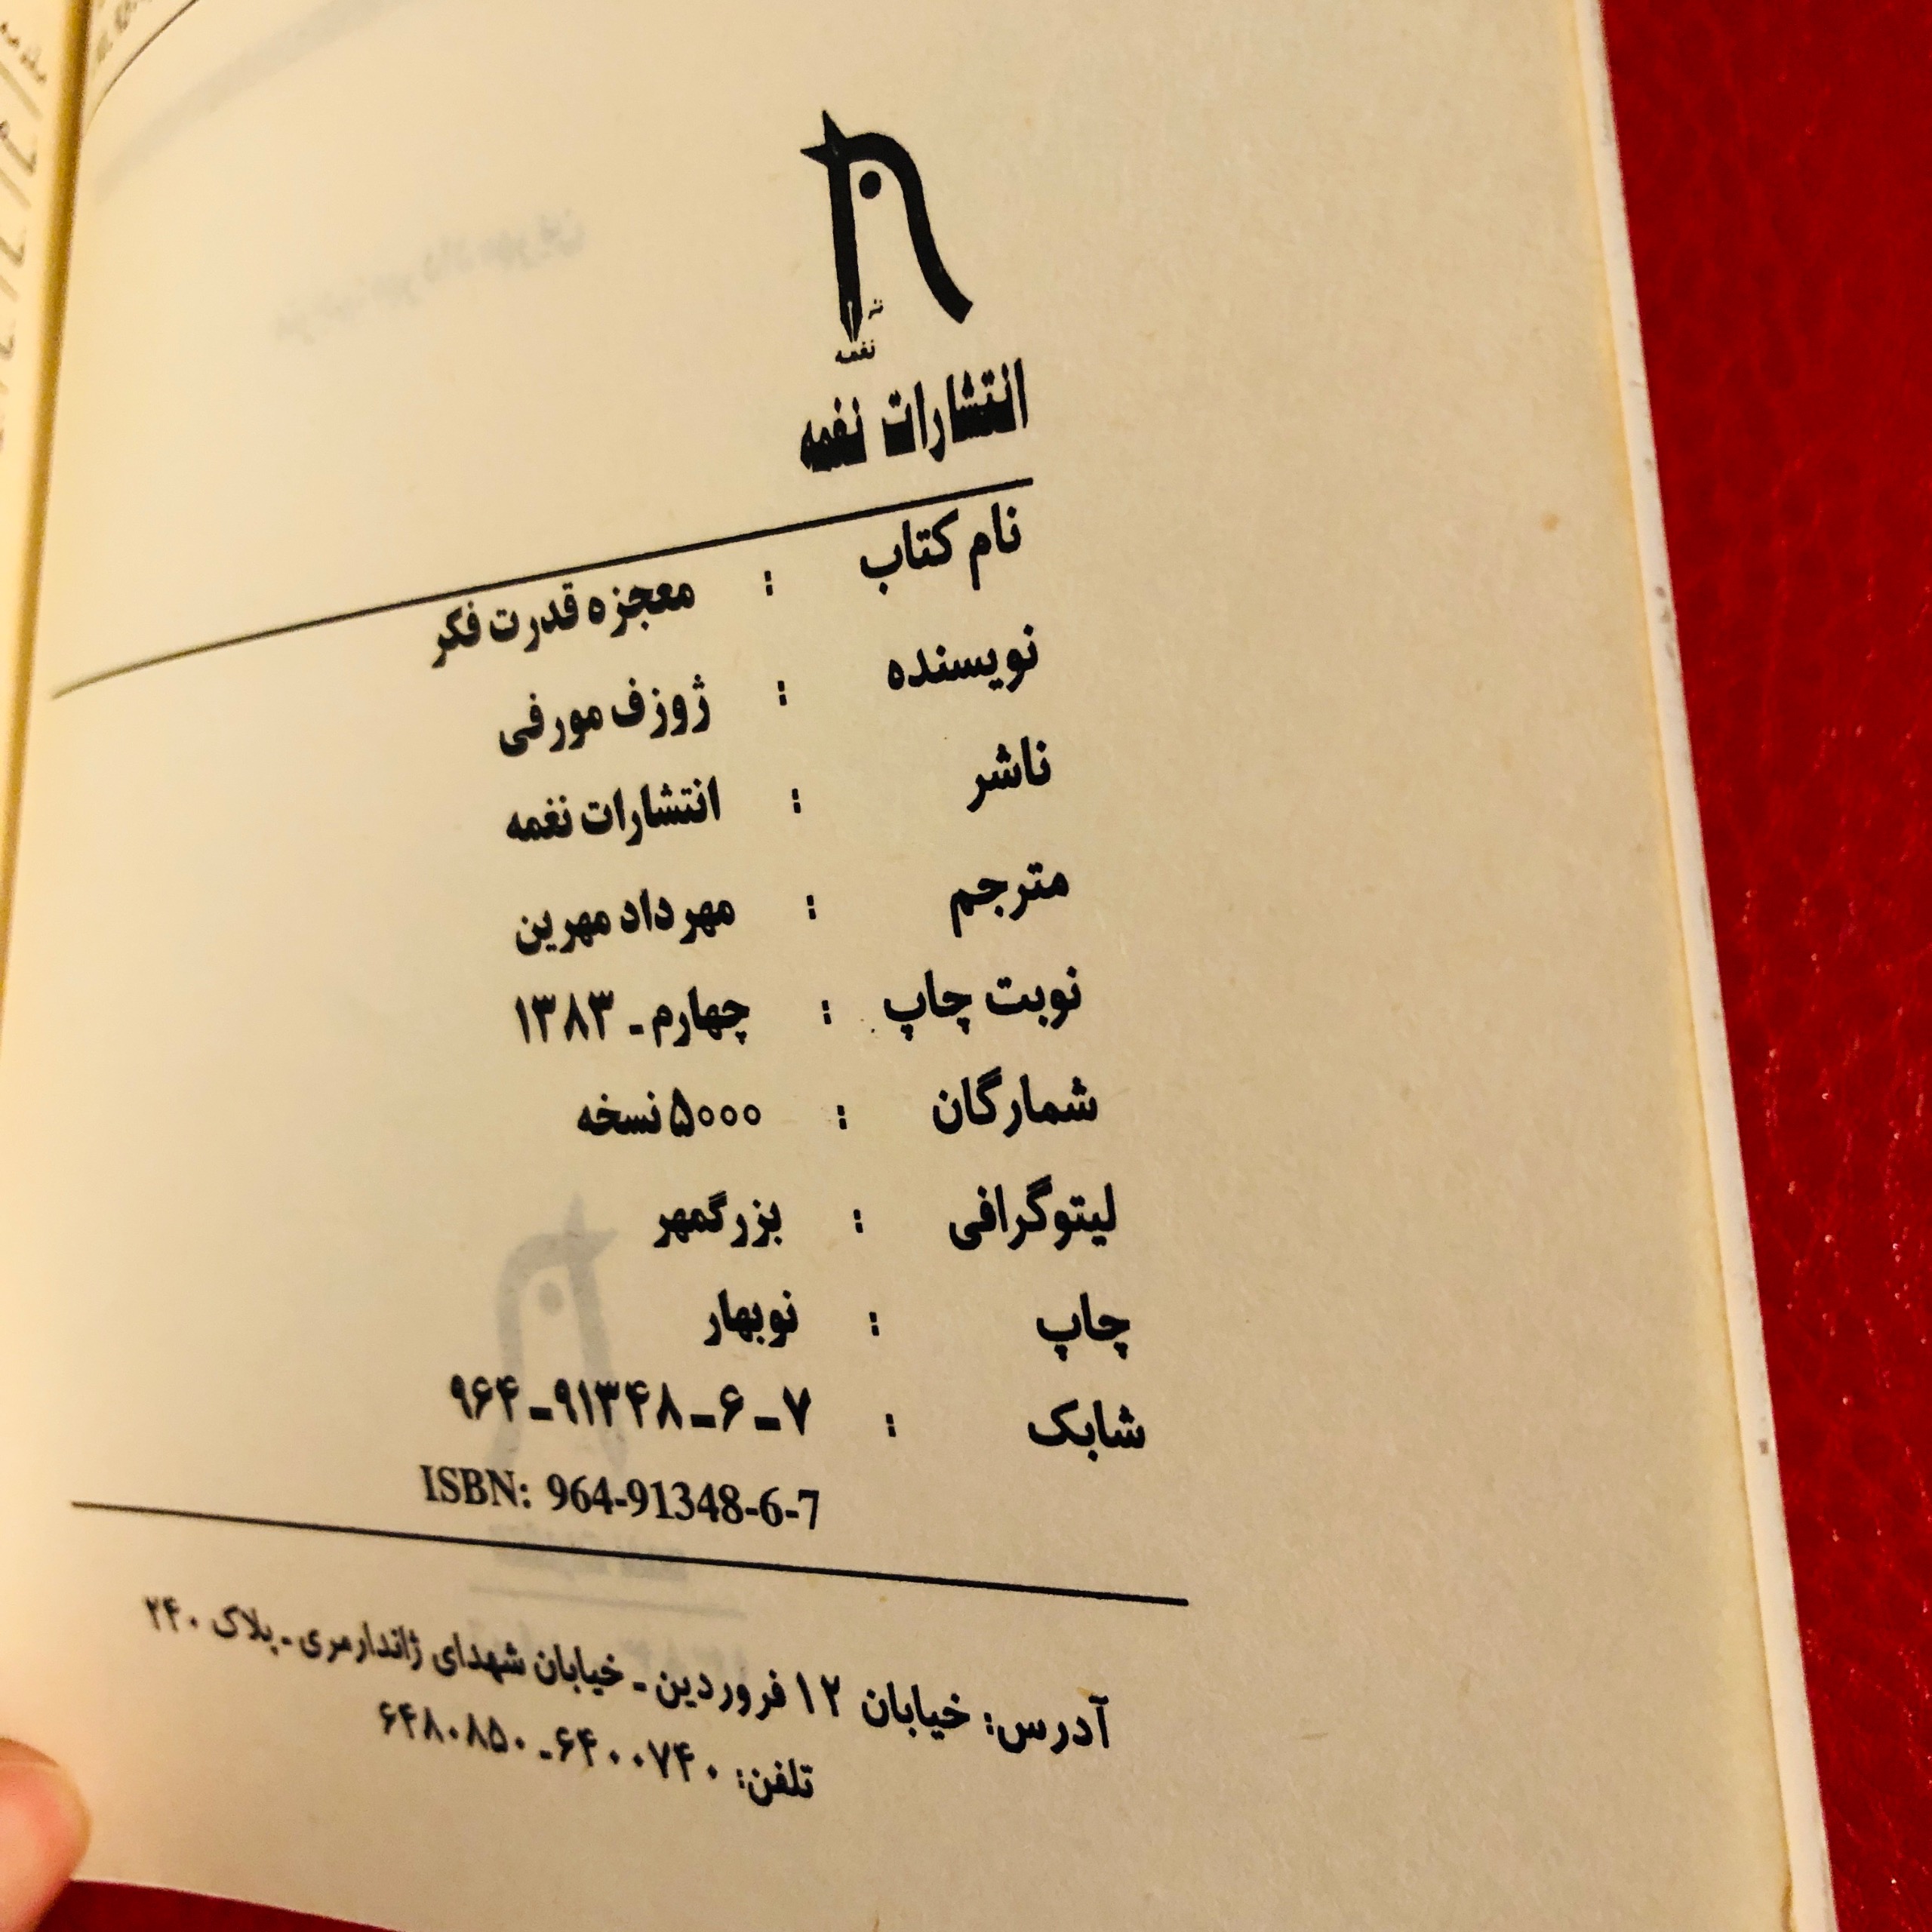 نشر
نغمه
انتشارات نغمه
نام کتاب : معجزه قدرت فکر
نویسنده : ژوزف مورفی
ناشر : انتشارات نغمه
مترجم : مهرداد مهرین
نوبت چاپ : چهارم - ۱۳۸۳
شمارگان : ۵۰۰۰ نسخه
لیتوگرافی : بزرگمهر
چاپ : نوبهار
شابک : ۷-۶-۹۱۳۴۸-۹۶۴
ISBN: 964-91348-6-7
آدرس: خیابان ۱۲ فروردین - خیابان شهدای ژاندارمری - پلاک ۲۴۰
تلفن: ۶۴۰۰۷۴۰-۶۴۸۰۸۵۰